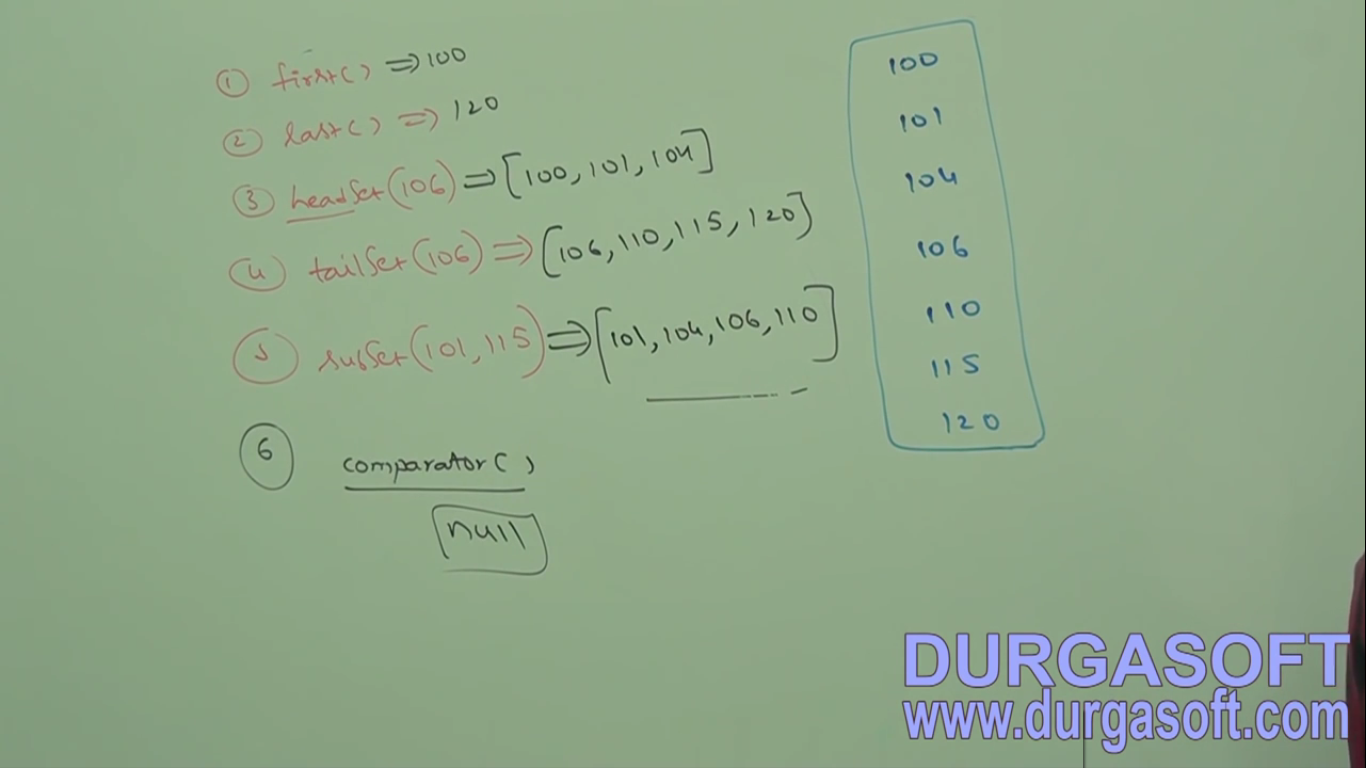 ① first() ⇒ 100
② last() ⇒ 120
③ headSet(106) ⇒ [100, 101, 104]
④ tailSet(106) ⇒ [106, 110, 115, 120]
⑤ subSet(101, 115) ⇒ [101, 104, 106, 110]
⑥ comparator()
null
100
101
104
106
110
115
120
DURGASOFT
www.durgasoft.com